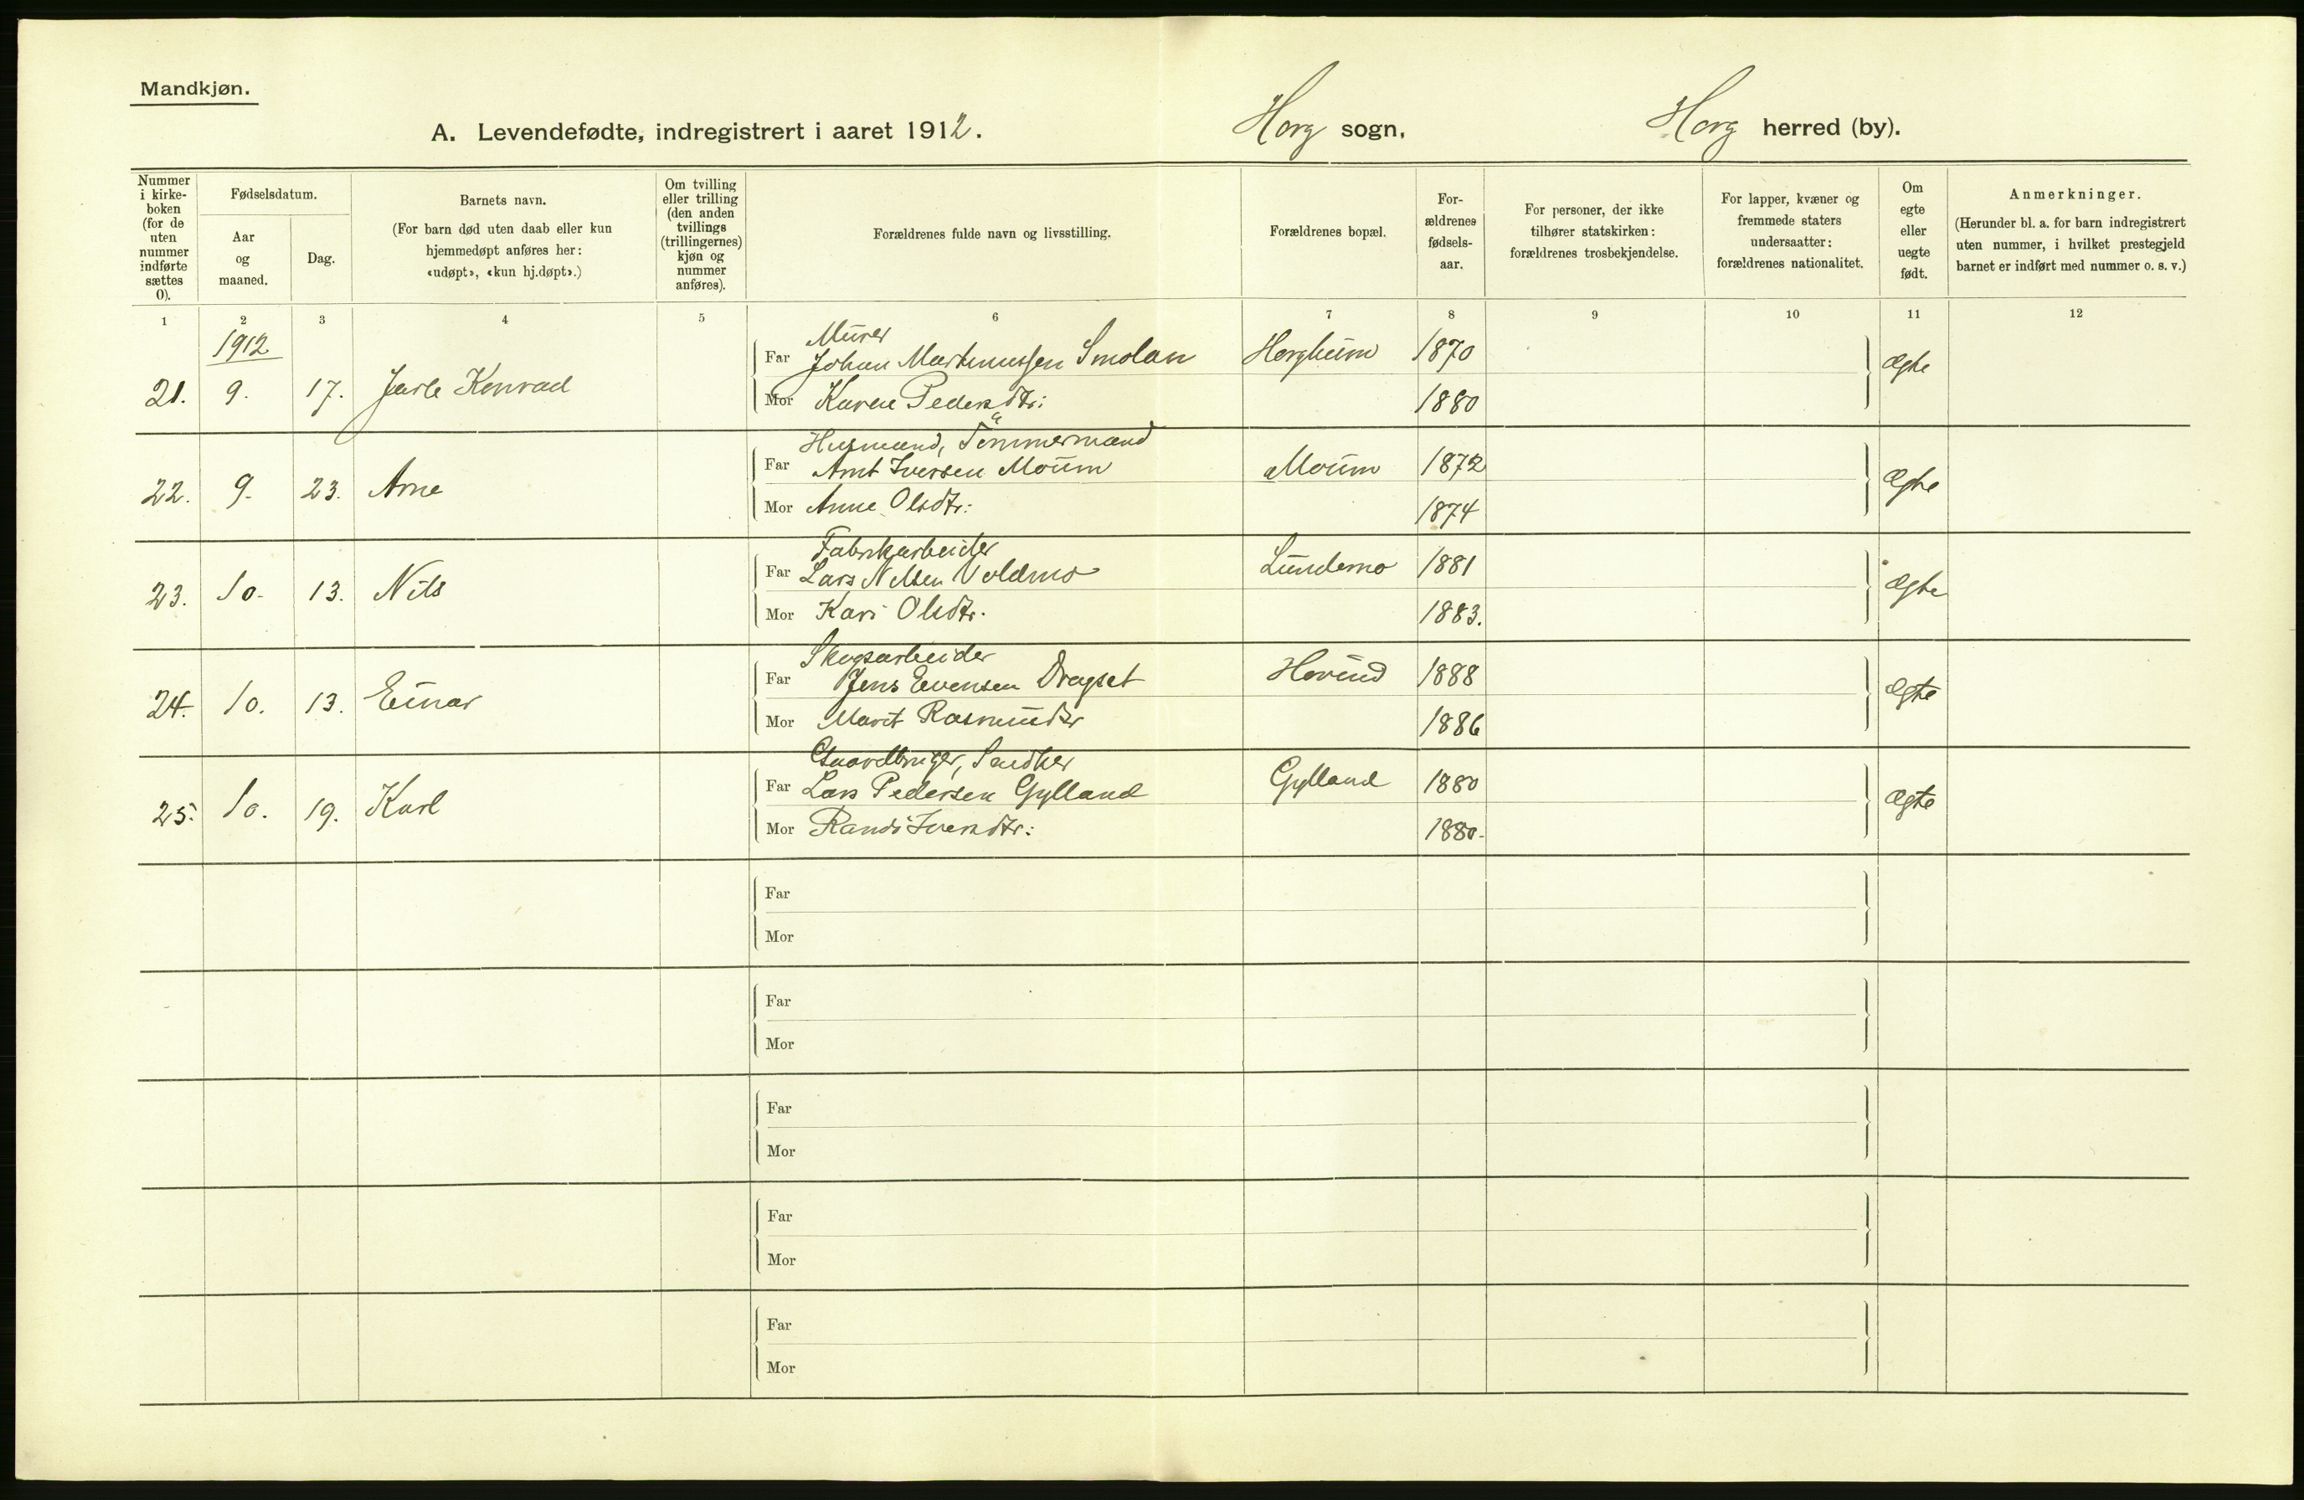 Mandkjøn.
A. Levendefødte, indregistrert i aaret 1912.
Horg sogn,
Horg herred (by).
Nummer
i kirke-
boken
(for de
uten
nummer
indførte
sættes
0).
Fødselsdatum.
Aar
og
maaned.
Dag.
Barnets navn.
(For barn død uten daab eller kun
hjemmedøpt anføres her:
«udøpt», «kun hj.døpt».)
Om tvilling
eller trilling
(den anden
tvillings
(trillingernes)
kjøn og
nummer
anføres).
Forældrenes fulde navn og livsstilling.
Forældrenes bopæl.
For-
ældrenes
fødsels-
aar.
For personer, der ikke
tilhører statskirken:
forældrenes trosbekjendelse.
For lapper, kvæner og
fremmede staters
undersaatter:
forældrenes nationalitet.
Om
egte
eller
uegte
født.
Anmerkninger.
(Herunder bl. a. for barn indregistrert
uten nummer, i hvilket prestegjeld
barnet er indført med nummer o. s. v.)
1 2 3 4 5 6 7 8 9 10 11 12
1912
Murer
Far Johan Martinussen Smolan Horgheim 1870
21. 9. 17. Jarle Konrad Ægte
Mor Karen Pedersdtr: 1880
Husmand, Tømmermand
Far Arnt Iversen Moum Moum 1872
22. 9. 23. Arne Ægte
Mor Anne Olsdtr: 1874
Fabrikarbeider
Far Lars Nilsen Voldmo Lundemo 1881
23. 10. 13. Nils Ægte
Mor Kari Olsdtr. 1883.
Skogsarbeider
Far Jens Evensen Dragset Hovind 1888
24. 10. 13. Einar Ægte
Mor Marit Rasmusdtr 1886
Gaardbruger,
Far Lars Pedersen Gylland Gylland 1880
25. 10. 19. Karl Ægte
Mor Randi Iversdtr: 1880.
Far
Mor
Far
Mor
Far
Mor
Far
Mor
Far
Mor